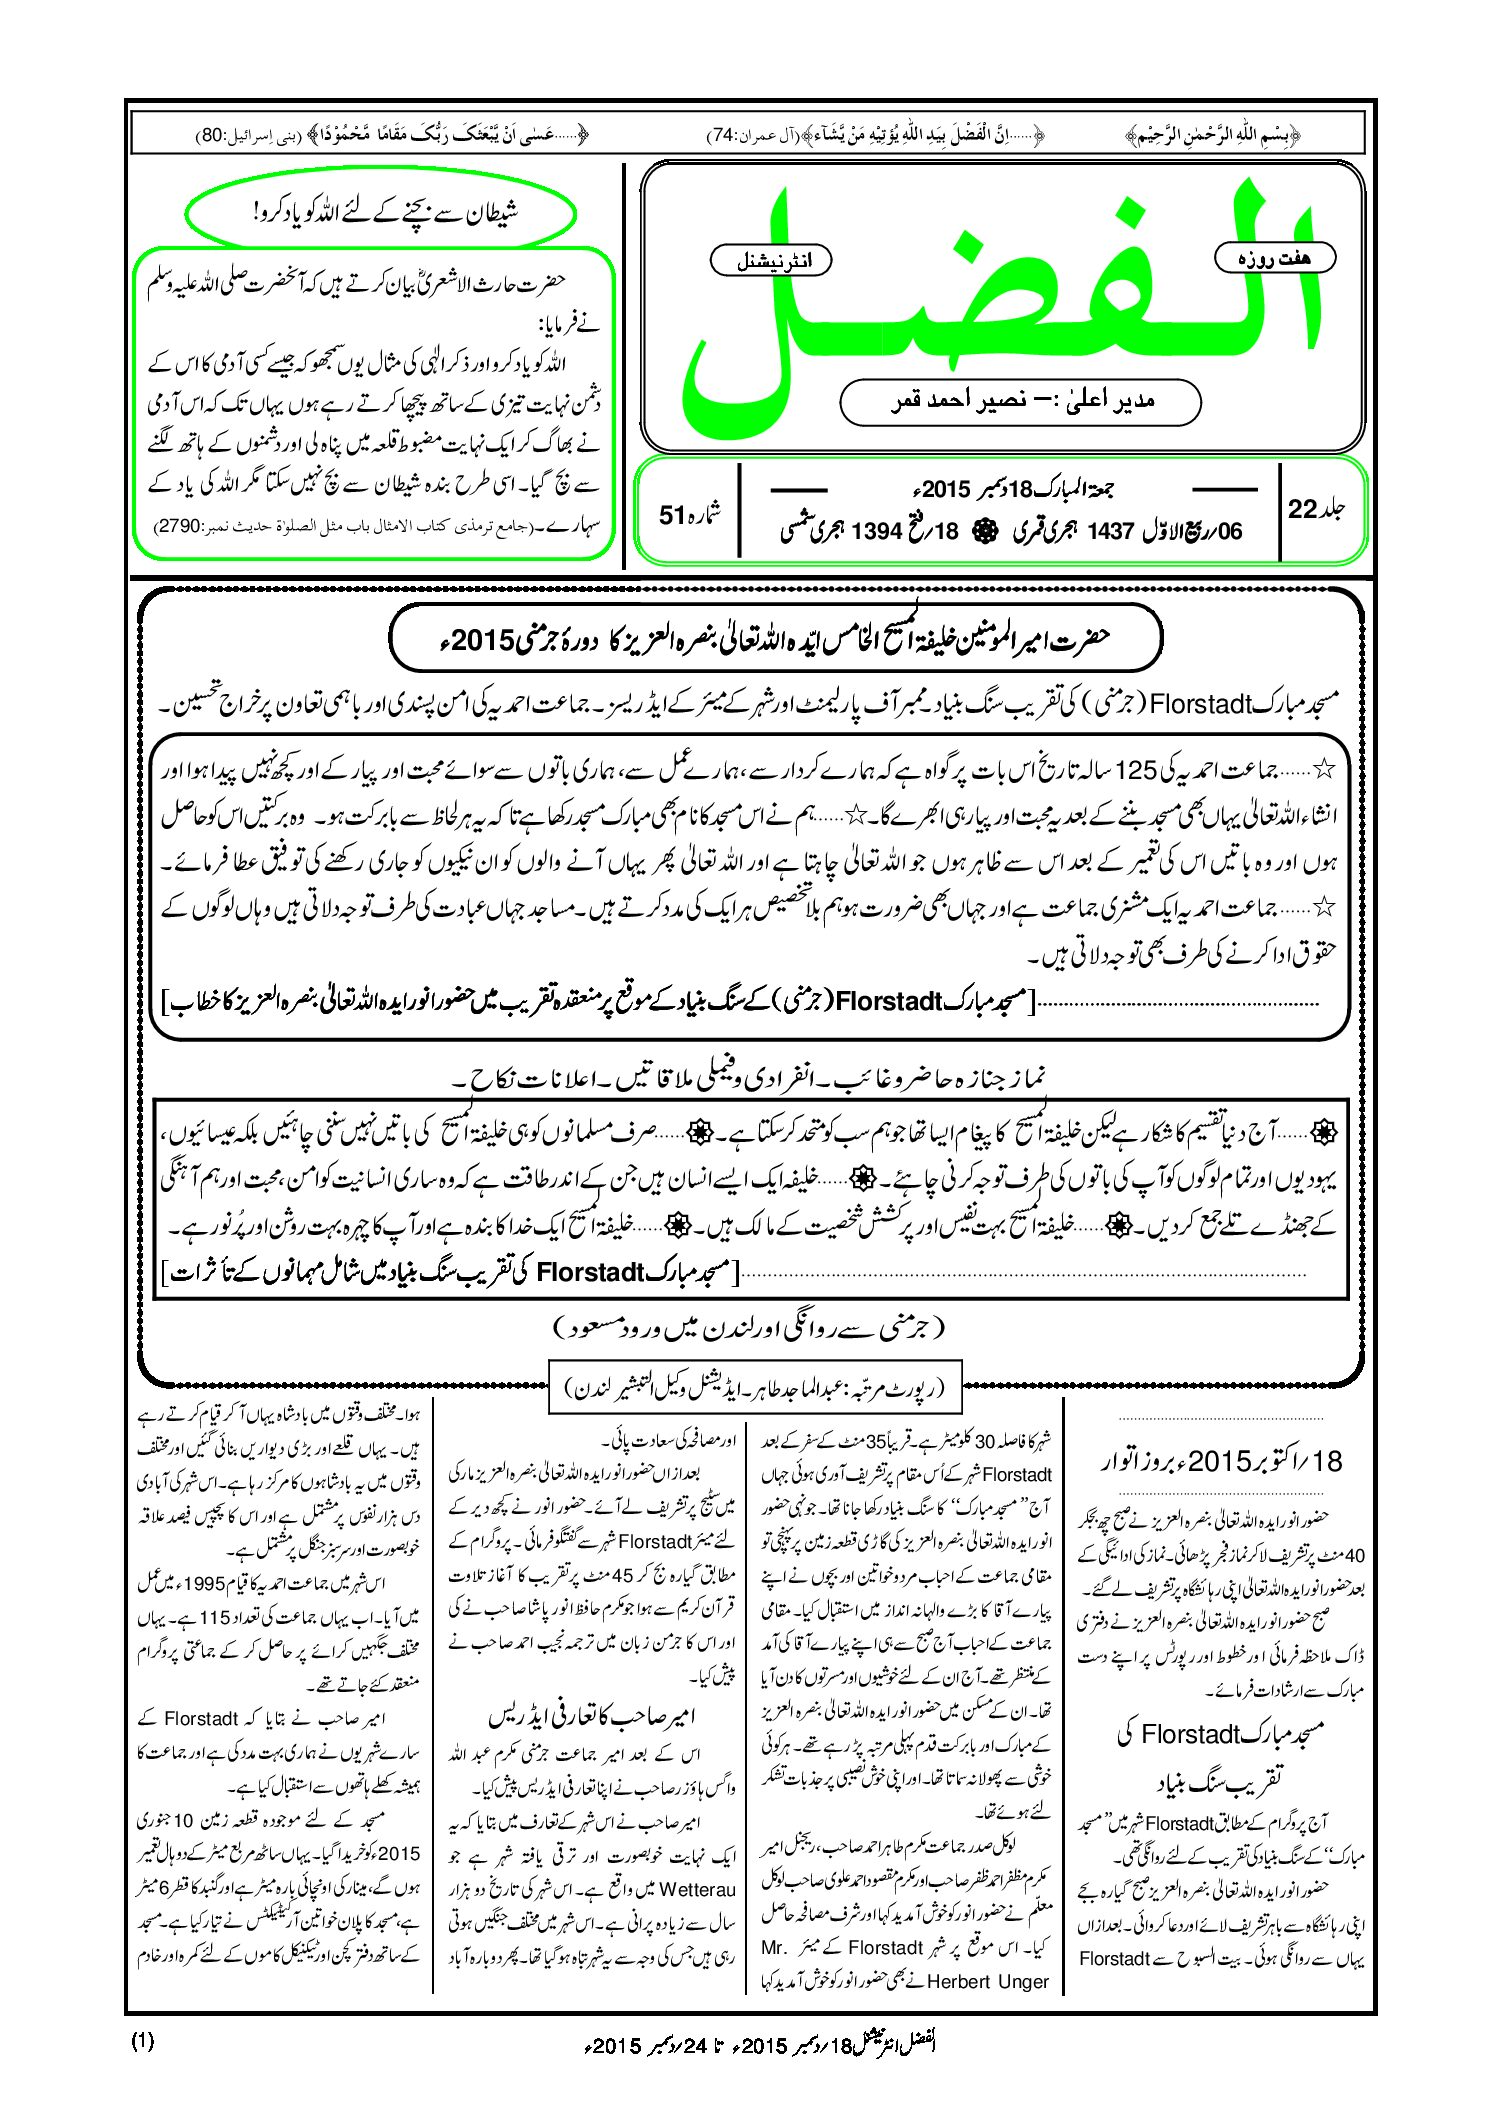 ﴿بِسْمِ اللّٰهِ الرَّحْمٰنِ الرَّحِيْمِ﴾
﴿......اِنَّ الْفَضْلَ بِيَدِ اللّٰهِ يُؤْتِيْهِ مَنْ يَّشَآء﴾(آل عمران:74)
﴿......عَسٰى اَنْ يَّبْعَثَكَ رَبُّكَ مَقَامًا مَّحْمُوْدًا﴾ (بنی اِسرائیل:80)
الفضل
ھفت روزہ
انٹرنیشنل
مدیر اعلیٰ :– نصیر احمد قمر
جلد 22
جمعۃ المبارک 18 دسمبر 2015ء
06/ربیع الاوّل 1437 ہجری قمری 18/فتح 1394 ہجری شمسی
شمارہ 51
شیطان سے بچنے کے لئے اللہ کو یاد کرو!
حضرت حارث الاشعریؓ بیان کرتے ہیں کہ آنحضرت صلی اللہ علیہ وسلم
نے فرمایا:
اللہ کو یاد کرو اور ذکر الٰہی کی مثال یوں سمجھو کہ جیسے کسی آدمی کا اس کے
دشمن نہایت تیزی کے ساتھ پیچھا کرتے رہے ہوں یہاں تک کہ اس آدمی
نے بھاگ کر ایک نہایت مضبوط قلعہ میں پناہ لی اور دشمنوں کے ہاتھ لگنے
سے بچ گیا۔ اسی طرح بندہ شیطان سے بچ نہیں سکتا مگر اللہ کی یاد کے
سہارے۔ (جامع ترمذی کتاب الامثال باب مثل الصلوٰۃ حدیث نمبر:2790)
حضرت امیر المومنین خلیفۃ المسیح الخامس ایّدہ اللہ تعالیٰ بنصرہ العزیز کا دورۂ جرمنی 2015ء
مسجد مبارک Florstadt (جرمنی) کی تقریب سنگ بنیاد۔ ممبر آف پارلیمنٹ اور شہر کے میئر کے ایڈریسز۔ جماعت احمدیہ کی امن پسندی اور باہمی تعاون پر خراج تحسین۔
☆...... جماعت احمدیہ کی 125 سالہ تاریخ اس بات پر گواہ ہے کہ ہمارے کردار سے، ہمارے عمل سے، ہماری باتوں سے سوائے محبت اور پیار کے اور کچھ نہیں پیدا ہوا اور
انشاء اللہ تعالیٰ یہاں بھی مسجد بننے کے بعد یہ محبت اور پیار ہی ابھرے گا۔ ☆......ہم نے اس مسجد کا نام بھی مبارک مسجد رکھا ہے تا کہ یہ ہر لحاظ سے بابرکت ہو۔ وہ برکتیں اس کو حاصل
ہوں اور وہ باتیں اس کی تعمیر کے بعد اس سے ظاہر ہوں جو اللہ تعالیٰ چاہتا ہے اور اللہ تعالیٰ پھر یہاں آنے والوں کو ان نیکیوں کو جاری رکھنے کی توفیق عطا فرمائے۔
☆...... جماعت احمدیہ ایک مشنری جماعت ہے اور جہاں بھی ضرورت ہو ہم بلا تخصیص ہر ایک کی مدد کرتے ہیں۔ مساجد جہاں عبادت کی طرف توجہ دلاتی ہیں وہاں لوگوں کے
حقوق ادا کرنے کی طرف بھی توجہ دلاتی ہیں۔
[مسجد مبارک Florstadt (جرمنی) کے سنگ بنیاد کے موقع پر منعقدہ تقریب میں حضور انور ایدہ اللہ تعالیٰ بنصرہ العزیز کا خطاب]
نماز جنازہ حاضر و غائب۔ انفرادی و فیملی ملاقاتیں۔ اعلانات نکاح۔
......آج دنیا تقسیم کا شکار ہے لیکن خلیفۃ المسیح کا پیغام ایسا تھا جو ہم سب کو متحد کر سکتا ہے۔ ......صرف مسلمانوں کو ہی خلیفۃ المسیح کی باتیں نہیں سننی چاہئیں بلکہ عیسائیوں،
یہودیوں اور تمام لوگوں کو آپ کی باتوں کی طرف توجہ کرنی چاہئے۔ ......خلیفہ ایک ایسے انسان ہیں جن کے اندر طاقت ہے کہ وہ ساری انسانیت کو امن، محبت اور ہم آہنگی
کے جھنڈے تلے جمع کر دیں۔ ......خلیفۃ المسیح بہت نفیس اور پرکشش شخصیت کے مالک ہیں۔ ......خلیفۃ المسیح ایک خدا کا بندہ ہے اور آپ کا چہرہ بہت روشن اور پُر نور ہے۔
[مسجد مبارک Florstadt کی تقریب سنگ بنیاد میں شامل مہمانوں کے تأثرات]
(جرمنی سے روانگی اور لندن میں ورود مسعود)
(رپورٹ مرتبہ: عبدالماجد طاہر۔ ایڈیشنل وکیل التبشیر لندن)
18/اکتوبر 2015ء بروز اتوار
حضور انور ایدہ اللہ تعالیٰ بنصرہ العزیز نے صبح چھ بجکر
40 منٹ پر تشریف لا کر نماز فجر پڑھائی۔ نماز کی ادائیگی کے
بعد حضور انور ایدہ اللہ تعالیٰ اپنی رہائشگاہ پر تشریف لے گئے۔
صبح حضور انور ایدہ اللہ تعالیٰ بنصرہ العزیز نے دفتری
ڈاک ملاحظہ فرمائی اور خطوط اور رپورٹس پر اپنے دست
مبارک سے ارشادات فرمائے۔
مسجد مبارک Florstadt کی
تقریب سنگ بنیاد
آج پروگرام کے مطابق Florstadt شہر میں ”مسجد
مبارک“ کے سنگ بنیاد کی تقریب کے لئے روانگی تھی۔
حضور انور ایدہ اللہ تعالیٰ بنصرہ العزیز صبح گیارہ بجے
اپنی رہائشگاہ سے باہر تشریف لائے اور دعا کروائی۔ بعد ازاں
یہاں سے روانگی ہوئی۔ بیت السبوح سے Florstadt
شہر کا فاصلہ 30 کلومیٹر ہے۔ قریباً 35 منٹ کے سفر کے بعد
Florstadt شہر کے اُس مقام پر تشریف آوری ہوئی جہاں
آج ”مسجد مبارک“ کا سنگ بنیاد رکھا جانا تھا۔ جونہی حضور
انور ایدہ اللہ تعالیٰ بنصرہ العزیز کی گاڑی قطعہ زمین پر پہنچی تو
مقامی جماعت کے احباب مرد و خواتین اور بچوں نے اپنے
پیارے آقا کا بڑے والہانہ انداز میں استقبال کیا۔ مقامی
جماعت کے احباب آج صبح سے ہی اپنے پیارے آقا کی آمد
کے منتظر تھے۔ آج ان کے لئے خوشیوں اور مسرتوں کا دن آیا
تھا۔ ان کے مسکن میں حضور انور ایدہ اللہ تعالیٰ بنصرہ العزیز
کے مبارک اور بابرکت قدم پہلی مرتبہ پڑ رہے تھے۔ ہر کوئی
خوشی سے پھولا نہ سماتا تھا۔ اور اپنی خوش نصیبی پر جذبات تشکر
لئے ہوئے تھا۔
لوکل صدر جماعت مکرم طاہر احمد صاحب، ریجنل امیر
مکرم مظفر احمد ظفر صاحب اور مکرم مقصود احمد علوی صاحب لوکل
معلّم نے حضور انور کو خوش آمدید کہا اور شرف مصافحہ حاصل
کیا۔ اس موقع پر شہر Florstadt کے میئر Mr.
Herbert Unger نے بھی حضور انور کو خوش آمدید کہا
اور مصافحہ کی سعادت پائی۔
بعد ازاں حضور انور ایدہ اللہ تعالیٰ بنصرہ العزیز مارکی
میں سٹیج پر تشریف لے آئے۔ حضور انور نے کچھ دیر کے
لئے میئر Florstadt شہر سے گفتگو فرمائی۔ پروگرام کے
مطابق گیارہ بج کر 45 منٹ پر تقریب کا آغاز تلاوت
قرآن کریم سے ہوا جو مکرم حافظ انور پاشا صاحب نے کی
اور اس کا جرمن زبان میں ترجمہ نجیب احمد صاحب نے
پیش کیا۔
امیر صاحب کا تعارفی ایڈریس
اس کے بعد امیر جماعت جرمنی مکرم عبد اللہ
واگس ہاؤزر صاحب نے اپنا تعارفی ایڈریس پیش کیا۔
امیر صاحب نے اس شہر کے تعارف میں بتایا کہ یہ
ایک نہایت خوبصورت اور ترقی یافتہ شہر ہے جو
Wetterau میں واقع ہے۔ اس شہر کی تاریخ دو ہزار
سال سے زیادہ پرانی ہے۔ اس شہر میں مختلف جنگیں ہوتی
رہی ہیں جس کی وجہ سے یہ شہر تباہ ہو گیا تھا۔ پھر دوبارہ آباد
ہوا۔ مختلف وقتوں میں بادشاہ یہاں آ کر قیام کرتے رہے
ہیں۔ یہاں قلعے اور بڑی دیواریں بنائی گئیں اور مختلف
وقتوں میں یہ بادشاہوں کا مرکز رہا ہے۔ اس شہر کی آبادی
دس ہزار نفوس پر مشتمل ہے اور اس کا پچیس فیصد علاقہ
خوبصورت اور سرسبز جنگل پر مشتمل ہے۔
اس شہر میں جماعت احمدیہ کا قیام 1995ء میں عمل
میں آیا۔ اب یہاں جماعت کی تعداد 115 ہے۔ یہاں
مختلف جگہیں کرائے پر حاصل کر کے جماعتی پروگرام
منعقد کئے جاتے تھے۔
امیر صاحب نے بتایا کہ Florstadt کے
سارے شہریوں نے ہماری بہت مدد کی ہے اور جماعت کا
ہمیشہ کھلے ہاتھوں سے استقبال کیا ہے۔
مسجد کے لئے موجودہ قطعہ زمین 10 جنوری
2015ء کو خریدا گیا۔ یہاں ساٹھ مربع میٹر کے دو ہال تعمیر
ہوں گے، مینار کی اونچائی بارہ میٹر ہے اور گنبد کا قطر 6 میٹر
ہے، مسجد کا پلان خواتین آرکیٹیکٹس نے تیار کیا ہے۔ مسجد
کے ساتھ دفتر، کچن اور ٹیکنیکل کاموں کے لئے کمرہ اور خادم
الفضل انٹرنیشنل 18/دسمبر 2015ء تا 24/دسمبر 2015ء
(1)